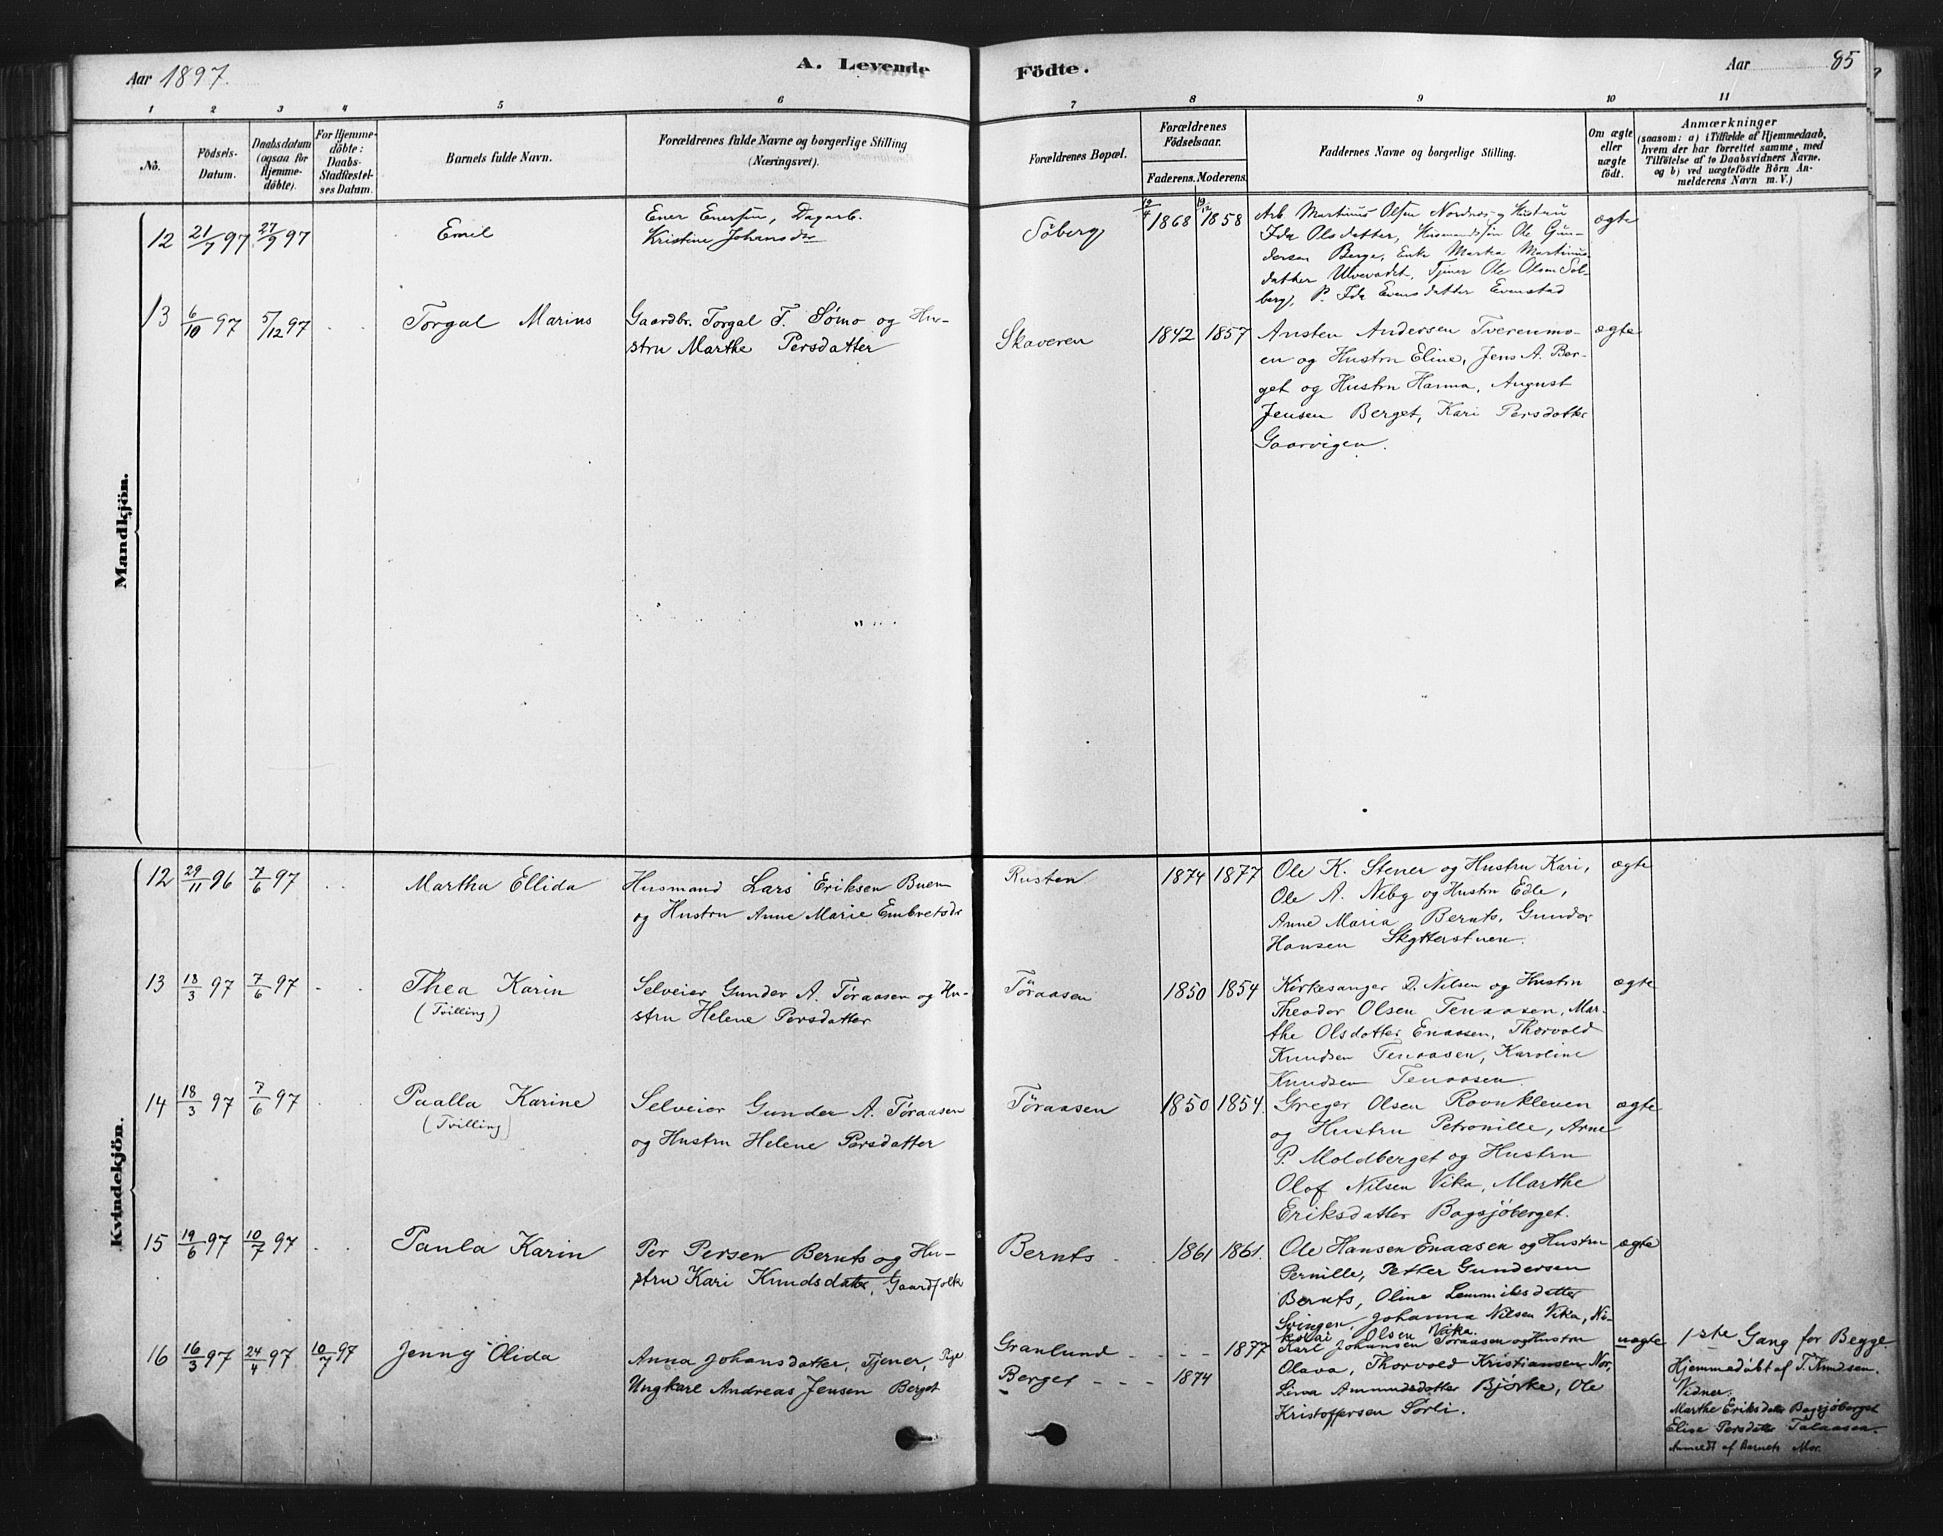 Aar 1897.
A. Levende
Födte.
Aar 85
1 2 3 4 5 6 7 8 9 10 11
No.
Födsels-
Datum.
Daabsdatum
(ogsaa for
Hjemme-
döbte).
For Hjemme-
döbte:
Daabs-
Stadfæstel-
ses Datum.
Barnets fulde Navn.
Forældrenes fulde Navne og borgerlige Stilling
(Næringsvei).
Forældrenes Bopæl.
Forældrenes
Födselsaar.
Faderens. Moderens.
Faddernes Navne og borgerlige Stilling.
Om ægte
eller
uægte
födt.
Anmærkninger
(saasom: a) i Tilfælde af Hjemmedaab,
hvem der har forrettet samme, med
Tilföielse af to Daabsvidners Navne.
og b) ved uægtefödte Börn An-
melderens Navn m. V.)
Mandkjön.
12 21/7 97 27/9 97
Emil
Ener Enersen, Dagarb.
Kristine Johansdr
Söberg
19/4 1868 19/12 1858
Arb. Martinus Olsen Nordnes og Hustru
Ida Olsdatter, Husmandssön Ole Gun-
dersen Berge, Enke Martha Martinus-
datter Ulvevadet, Tjener Ole Olsen Söl-
berg, P. Ida Evensdatter Evenstad
ægte
13 6/10 97 5/12 97
Torgal Marius
Gaardbr. Torgal T. Sömo og Hu-
stru Marthe Persdatter
Skaveren
1842 1857
Ansten Andersen Tverenmo-
en og Hustru Eline, Jens A. Ber-
get og Hustru Hanna, August
Jensen Berget, Kari Persdatter
Gaarvigen.
ægte
Kvindekjön.
12 29/11 96 7/6 97
Martha Ellida
Husmand Lars Eriksen Buen
og Hustru Anne Marie Embretsdr
Rusten
1874 1877
Ole K. Stener og Hustru Kari,
Ole A. Neby og Hustru Edle,
Anne Maria Bernts, Gunder
Hansen Skytterstuen.
ægte
13 18/3 97 7/6 97
Thea Karin
(Tvilling)
Selveier Gunder A. Töraasen og Hu-
stru Helene Persdatter
Töraasen
1850 1854
Kirkesanger D. Nilsen og Hustru
Theodor Olsen Tenaasen, Mar-
the Olsdatter Enaasen, Thorvold
Knudsen Tenaasen, Karoline
Knudsen Tenaasen.
ægte
14 18/3 97 7/6 97
Paalla Karine
(Tvilling)
Selveier Gunder A. Töraasen
og Hustru Helene Persdatter
Töraasen
1850 1854.
Greger Olsen Rovnkleven
og Hustru Petronille, Arne
P. Moldberget og Hustru
Olaf Nilsen Vika, Marthe
Eriksdatter Bagsjöberget.
ægte
15 19/6 97 10/7 97
Paula Karin
Per Persen Bernts og Hu-
stru Kari Knudsdatter, Gaardfolk
Bernts
1861 1861.
Ole Hansen Enaasen og Hustru
Pernille, Petter Gundersen
Bernts, Oline Lemmiksdatter
Svingen, Johanna Nilsen Vika, Ni-
kolai Olsen Vika.
ægte
16 16/3 97 24/4 97 10/7 97
Jenny Olida
Anna Johansdatter, Tjener, Pige
Ungkarl Andreas Jensen Berget
Granlund 1877
Berget 1874
Karl Johansen Töraasen og Hustru
Olava, Thorvold Kristiansen Nor,
Lina Ammundsdatter Björke, Ole
Kristoffersen Sörli.
uægte
1ste Gang for Begge.
Hjemmedöbt af T. Knudsen.
Vidner.
Marthe Eriksdatter Bagsjöberget
Elise Persdatter Talaasen.
Anmeldt af Barnets Mor.